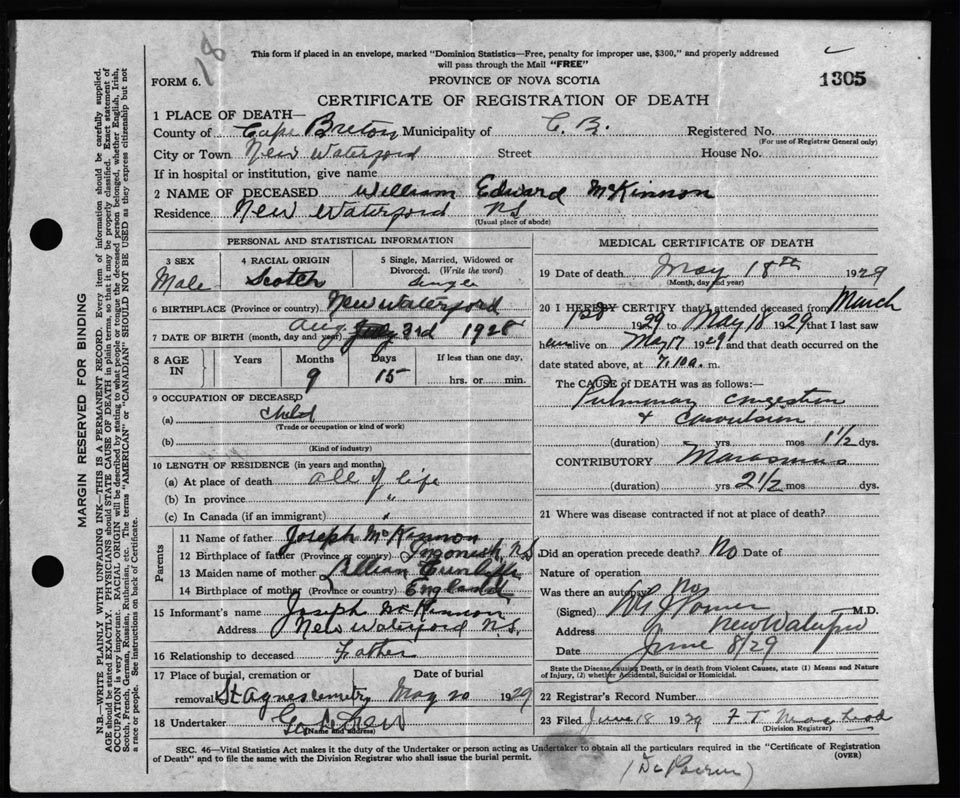 18
This form if placed in an envelope, marked "Dominion Statistics—Free, penalty for improper use, $300," and properly addressed
will pass through the Mail "FREE"
FORM 6.
PROVINCE OF NOVA SCOTIA
1305
CERTIFICATE OF REGISTRATION OF DEATH
1 PLACE OF DEATH—
County of Cape Breton Municipality of C. B. Registered No.
(For use of Registrar General only)
City or Town New Waterford Street House No.
If in hospital or institution, give name
2 NAME OF DECEASED William Edward McKinnon
Residence New Waterford NS
(Usual place of abode)
PERSONAL AND STATISTICAL INFORMATION
3 SEX
Male
4 RACIAL ORIGIN
Scotch
5 Single, Married, Widowed or
Divorced. (Write the word)
Single
6 BIRTHPLACE (Province or country) New Waterford
7 DATE OF BIRTH (month, day and year) Aug. July 3rd 1928
8 AGE IN
Years Months Days If less than one day,
9 15 hrs. or min.
9 OCCUPATION OF DECEASED
(a) Child
(Trade or occupation or kind of work)
(b)
(Kind of industry)
10 LENGTH OF RESIDENCE (in years and months)
(a) At place of death all of life
(b) In province "
(c) In Canada (if an immigrant) "
Parents
11 Name of father Joseph McKinnon
12 Birthplace of father (Province or country) Ingonish, N.S.
13 Maiden name of mother Lillian Cunliffe
14 Birthplace of mother (Province or country) England
15 Informant's name Joseph McKinnon
Address New Waterford N.S.
16 Relationship to deceased Father
17 Place of burial, cremation or Date of burial
removal St Agnes cemetry May 20 1929
18 Undertaker
(Name and address)
MEDICAL CERTIFICATE OF DEATH
19 Date of death May 18th 1929
(Month, day and year)
20 I HEREBY CERTIFY that I attended deceased from March
1929 to May 18 1929 that I last saw
h alive on May 17 1929 and that death occurred on
date stated above, at 7.10 a. m.
The CAUSE of DEATH was as follows:—
Pulmonary congestion
& convulsion
(duration) yrs mos 1 1/2 dys.
CONTRIBUTORY Marasmus
(duration) yrs 2 1/2 mos dys.
21 Where was disease contracted if not at place of death?
Did an operation precede death? No Date of
Nature of operation
Was there an autopsy No
(Signed) M.D.
Address New Waterford
Date June 8/29
State the Disease causing Death, or in death from Violent Causes, state (1) Means and Nature
of Injury, (2) whether Accidental, Suicidal or Homicidal.
22 Registrar's Record Number
23 Filed June 18 1929 F T MacLeod
(Division Registrar)
SEC. 46—Vital Statistics Act makes it the duty of the Undertaker or person acting as Undertaker to obtain all the particulars required in the "Certificate of Registration
of Death" and to file the same with the Division Registrar who shall issue the burial permit.
(OVER)
MARGIN RESERVED FOR BINDING
N.B.—WRITE PLAINLY WITH UNFADING INK—THIS IS A PERMANENT RECORD. Every item of information should be carefully supplied.
AGE should be stated EXACTLY. PHYSICIANS should STATE CAUSE OF DEATH in plain terms, so that it may be properly classified. Exact statement of
OCCUPATION is very important. RACIAL ORIGIN will be described by stating to what people or tongue the deceased person belonged, whether English, Irish,
Scotch, French, German, Russian, Ruthenian, etc. The terms "AMERICAN" or "CANADIAN" SHOULD NOT BE USED as they express citizenship but not
a race or people. See instructions on back of Certificate.